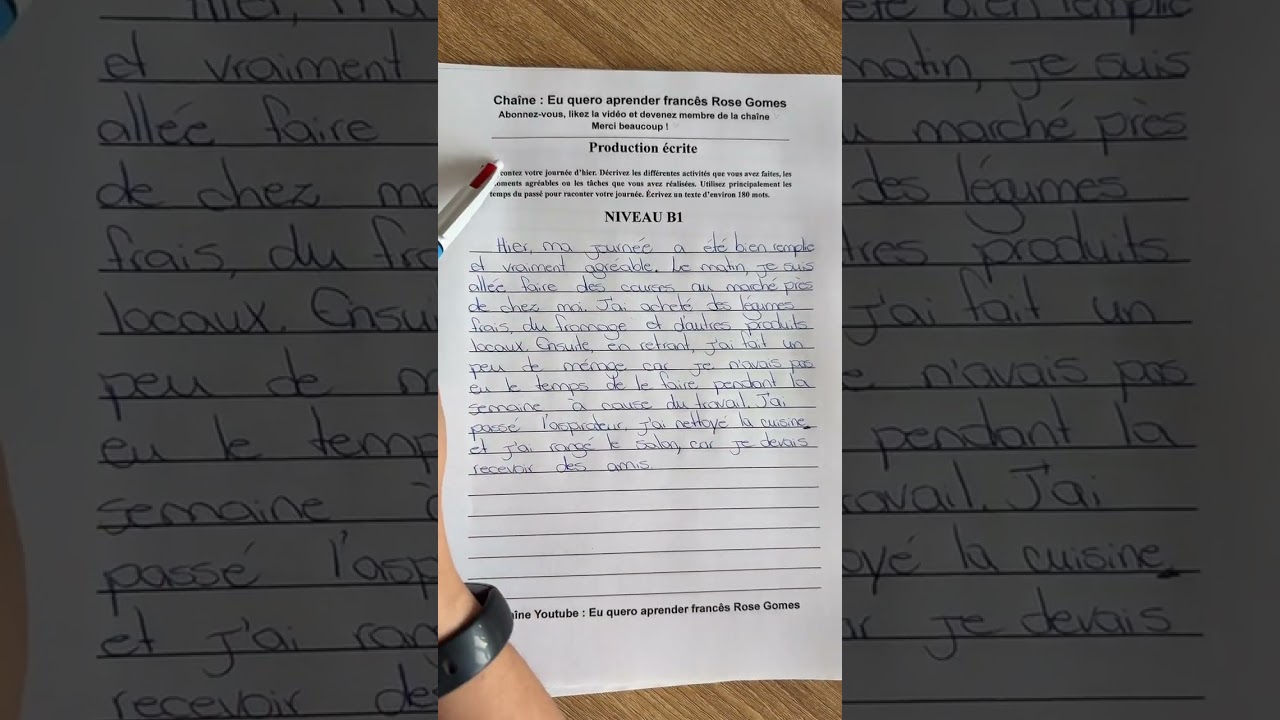 Chaîne : Eu quero aprender francês Rose Gomes
Abonnez-vous, likez la vidéo et devenez membre de la chaîne
Merci beaucoup !
Production écrite
contez votre journée d'hier. Décrivez les différentes activités que vous avez faites, les
oments agréables ou les tâches que vous avez réalisées. Utilisez principalement les
temps du passé pour raconter votre journée. Écrivez un texte d'environ 180 mots.
NIVEAU B1
Hier, ma journée a été bien remplie
et vraiment agréable. Le matin, je suis
allée faire des courses au marché près
de chez moi. J'ai acheté des légumes
frais, du fromage et d'autres produits
locaux. Ensuite, en retrant, j'ai fait un
peu de ménage car je n'avais pas
eu le temps de le faire pendant la
semaine à cause du travail. J'ai
passé l'aspirateur, j'ai nettoyé la cuisine
et j'ai rangé le salon, car je devais
recevoir des amis.
îne Youtube : Eu quero aprender francês Rose Gomes